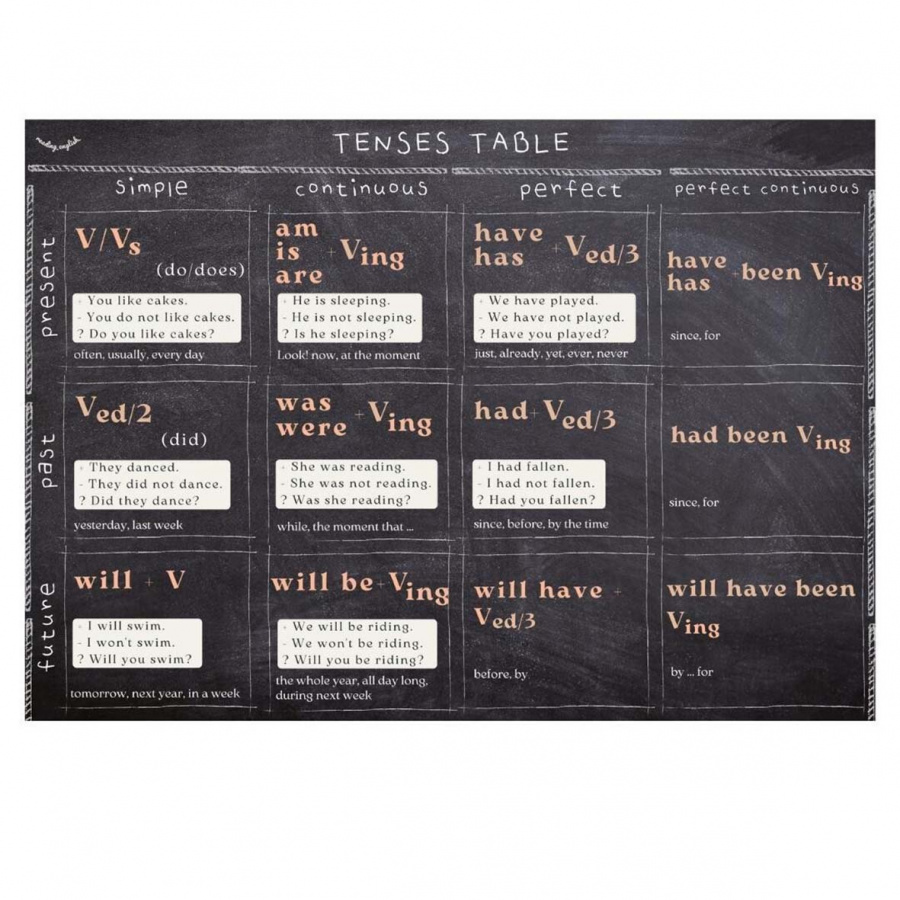 nadine_english
TENSES TABLE
simple
continuous
perfect
perfect continuous
present
V/Vs
(do/does)
+ You like cakes.
- You do not like cakes.
? Do you like cakes?
often, usually, every day
am
is
are
+ Ving
+ He is sleeping.
- He is not sleeping.
? Is he sleeping?
Look! now, at the moment
have
has
+ Ved/3
+ We have played.
- We have not played.
? Have you played?
just, already, yet, ever, never
have
has
+ been Ving
since, for
past
Ved/2
(did)
+ They danced.
- They did not dance.
? Did they dance?
yesterday, last week
was
were
+ Ving
+ She was reading.
- She was not reading.
? Was she reading?
while, the moment that ...
had + Ved/3
+ I had fallen.
- I had not fallen.
? Had you fallen?
since, before, by the time
had been Ving
since, for
future
will + V
+ I will swim.
- I won't swim.
? Will you swim?
tomorrow, next year, in a week
will be + Ving
+ We will be riding.
- We won't be riding.
? Will you be riding?
the whole year, all day long,
during next week
will have +
Ved/3
before, by
will have been
Ving
by ... for